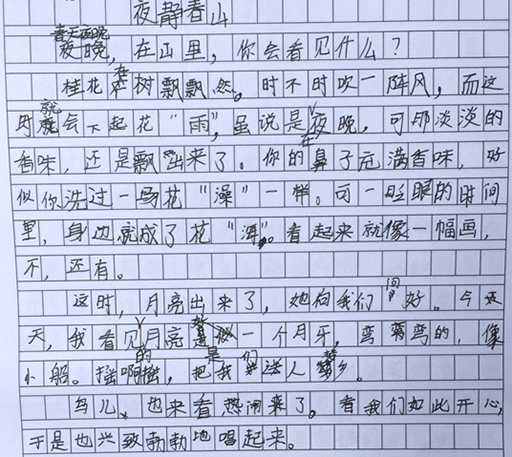 夜静春山
春天夜晚
夜晚，在山里，你会看见什么？
桂花在树飘飘然。时不时吹一阵风，而这
时就会下起花“雨”，虽说是在夜晚，可那淡淡的
香味，还是飘出来了。你的鼻子充满香味，好
似你洗过一场花“澡”一样。可一眨眼的时间
里，身边就成了花“海”。看起来就像一幅画，
不，还有。
这时，月亮出来了，她向我们问好。今天
天，我看见月亮是一个月牙，弯弯的，像
小船。摇啊摇，把我们送入梦乡。
鸟儿，也来看热闹来了。看我们如此开心，
于是也兴致勃勃地唱起来。